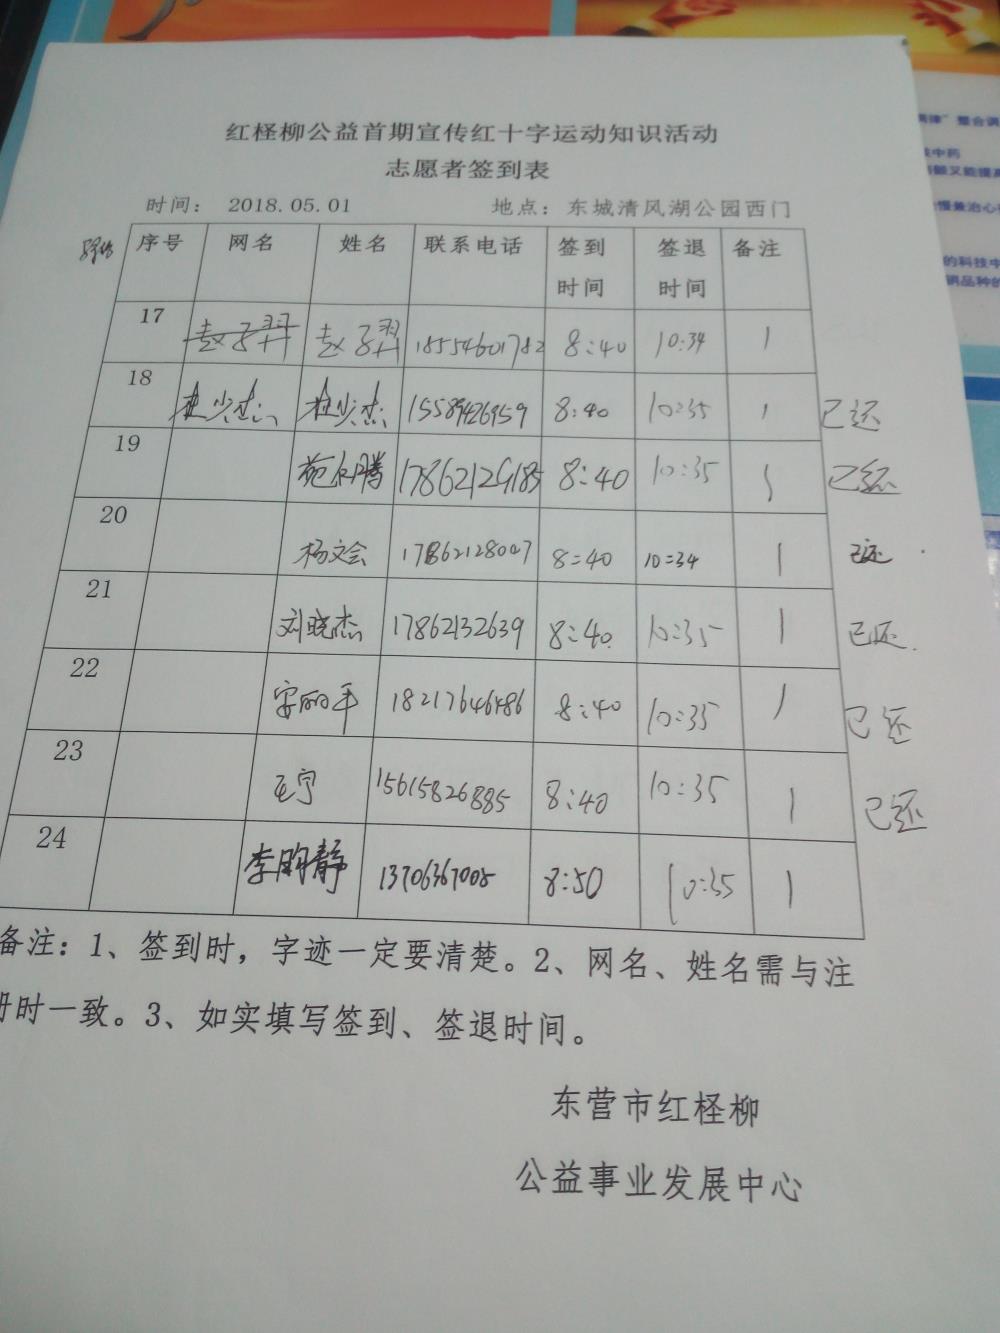 红柽柳公益首期宣传红十字运动知识活动
志愿者签到表
时间： 2018.05.01 地点：东城清风湖公园西门
序号 网名 姓名 联系电话 签到时间 签退时间 备注
17 赵子羿 赵子羿 18554601782 8:40 10:34 1
18 杜少杰 杜少杰 15589426959 8:40 10:35 1 已还
19 17862129185 8:40 10:35 1 已还
20 杨文会 17862128007 8:40 10:34 1 已还
21 刘晓杰 17862132639 8:40 10:35 1 已还
22 安丽平 18217646486 8:40 10:35 1 已还
23 王宁 15615826885 8:40 10:35 1 已还
24 李昀静 13706367008 8:50 10:35 1
备注：1、签到时，字迹一定要清楚。2、网名、姓名需与注
册时一致。3、如实填写签到、签退时间。
东营市红柽柳
公益事业发展中心
整合调
技中药
又能提高
慢兼治心
的科技中
销品种的